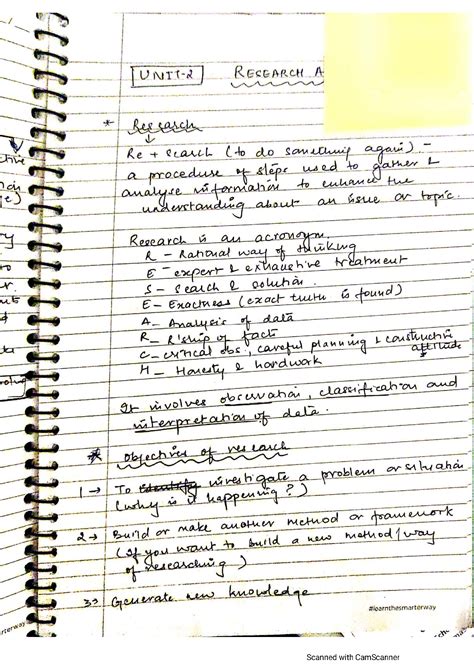 UNIT-2 RESEARCH A
* Research
↓
Re + search (to do something again) -
a procedure of steps used to gather &
analyse information to enhance the
understanding about an issue or topic.
Research is an acronym.
R - Rational way of thinking
E - expert & exhaustive treatment
S - Search & solution
E - Exactness (exact truth is found)
A - Analysis of data
R - R'ship of facts
C - critical obs, careful planning & constructive
attitude
H - Honesty & hardwork
It involves observation, classification and
interpretation of data.
* Objectives of research
1 → To identify investigate a problem or situation
(why is it happening?)
2 → Build or make another method or framework
(if you want to build a new method/way
of researching)
3 → Generate new knowledge
#learnthesmarterway
Scanned with CamScanner